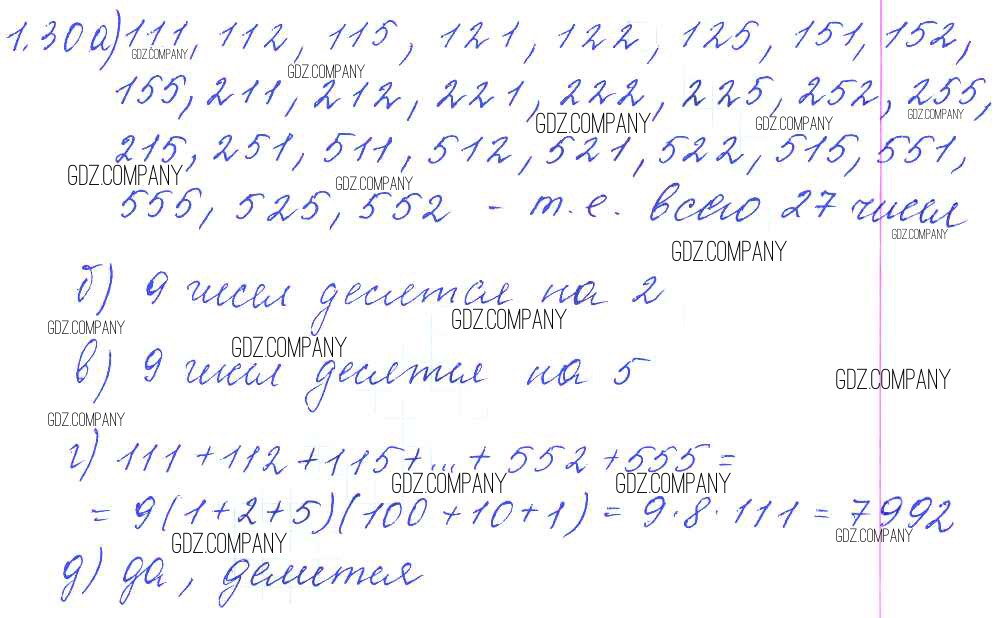 1.30 а) 111, 112, 115, 121, 122, 125, 151, 152,
GDZ.COMPANY
GDZ.COMPANY
155, 211, 212, 221, 222, 225, 252, 255,
GDZ.COMPANY
GDZ.COMPANY
GDZ.COMPANY
215, 251, 511, 512, 521, 522, 515, 551,
GDZ.COMPANY
GDZ.COMPANY
555, 525, 552 - т.е. всего 27 чисел
GDZ.COMPANY
GDZ.COMPANY
б) 9 чисел делятся на 2
GDZ.COMPANY
GDZ.COMPANY
GDZ.COMPANY
в) 9 чисел делятся на 5
GDZ.COMPANY
GDZ.COMPANY
г) 111 + 112 + 115 + ... + 552 + 555 =
GDZ.COMPANY
GDZ.COMPANY
= 9(1+2+5)(100+10+1) = 9·8·111 = 7992
GDZ.COMPANY
GDZ.COMPANY
д) да, делится